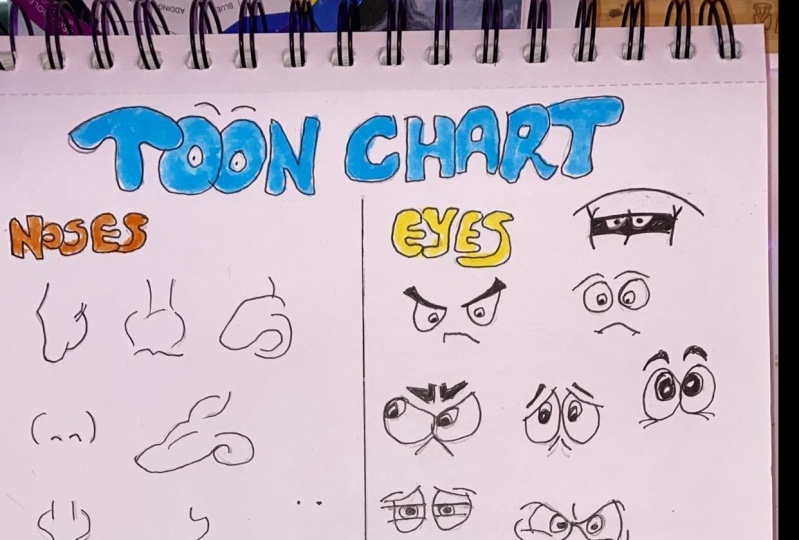 TOON CHART
NOSES
EYES